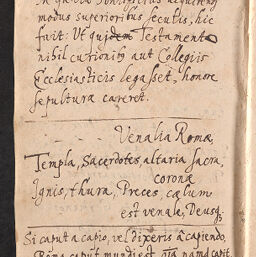 modus superioribus secutis, hic
fuit: Ut quidem Testamento
nihil curionibus aut Collegiis
Ecclesiasticis legasset, honore
sepulturæ careret.
Venalia Romæ
Templa, Sacerdotes, altaria sacra,
coronæ
Ignis, thura, Preces, cælum
est venale, Deusq.
Si caput a capio, vel dixeris â capiendo,
Roma caput mundi est, capit